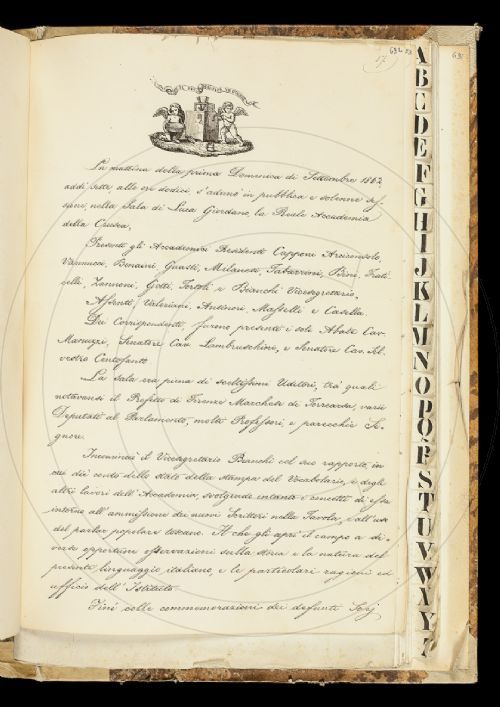 692
57.
La mattina della prima Domenica di Settembre 1862,
addì sette, alle ore dodici, s'adunò in pubblica e solenne se-
sione, nella Sala di Luca Giordano, la Reale Accademia
della Crusca.
Presenti gli Accademici Residenti Capponi Arciconsolo,
Vannucci, Bonaini, Guasti, Milanesi, Tabarrini, Bini, Frati-
celli, Zannoni, Gotti, Tortoli e Bianchi Vicesegretario.
Assenti Valeriani, Antinori, Maffei e Casella.
Dei Corrispondenti, furono presenti i soli Abate Cav.
Manuzzi, Senatore Cav. Lambruschini, e Senatore Cav. Sil-
vestro Centofanti.
La sala era piena di sceltissimi Uditori, tra' quali
notavansi il Prefetto di Firenze Marchese di Torrearsa, varii
Deputati al Parlamento, molti Professori, e parecchie Si-
gnore.
Incominciò il Vicesegretario Bianchi col suo rapporto, in
cui diè conto dello stato della stampa del Vocabolario, e degli
altri lavori dell'Accademia, svolgendo intanto i concetti di essa
intorno all'ammissione dei nuovi Scrittori nella Tavola, e all'uso
del parlar popolare toscano. Il che gli aprì il campo a di-
verse opportune osservazioni sulla storia e la natura del
presente linguaggio italiano, e le particolari ragioni ed
ufficio dell'Istituto.
Finì colle commemorazioni dei defunti Socj
A
B
C
D
E
F
G
H
I
J
K
L
M
N
O
P
Q
R
S
T
U
V
W
X
Y
Z